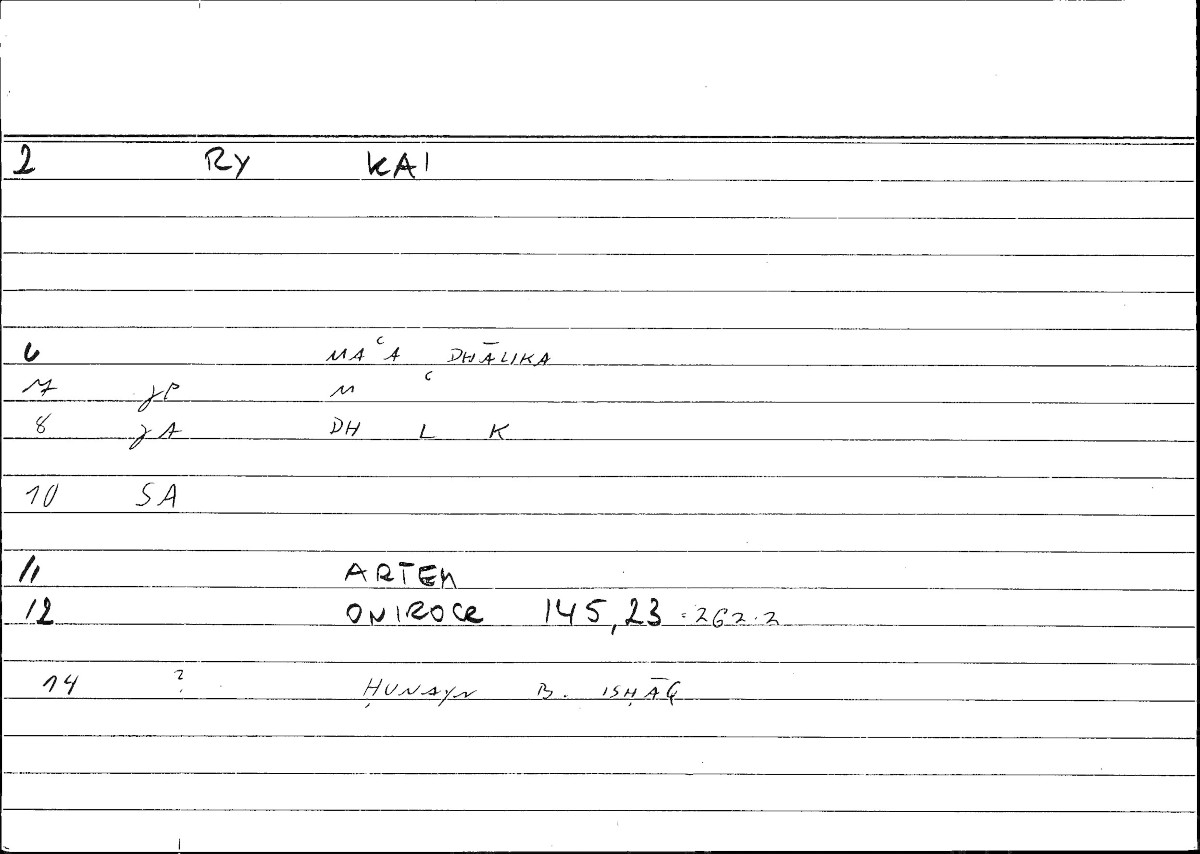 2 RY KAI
6 MAʿA DHĀLIKA
7 γP M ʿ
8 γA DH L K
10 SA
11 ARTEM
12 ONIROCR 145,23 = 262.2
14 ? ḤUNAYN B. ISḤĀQ